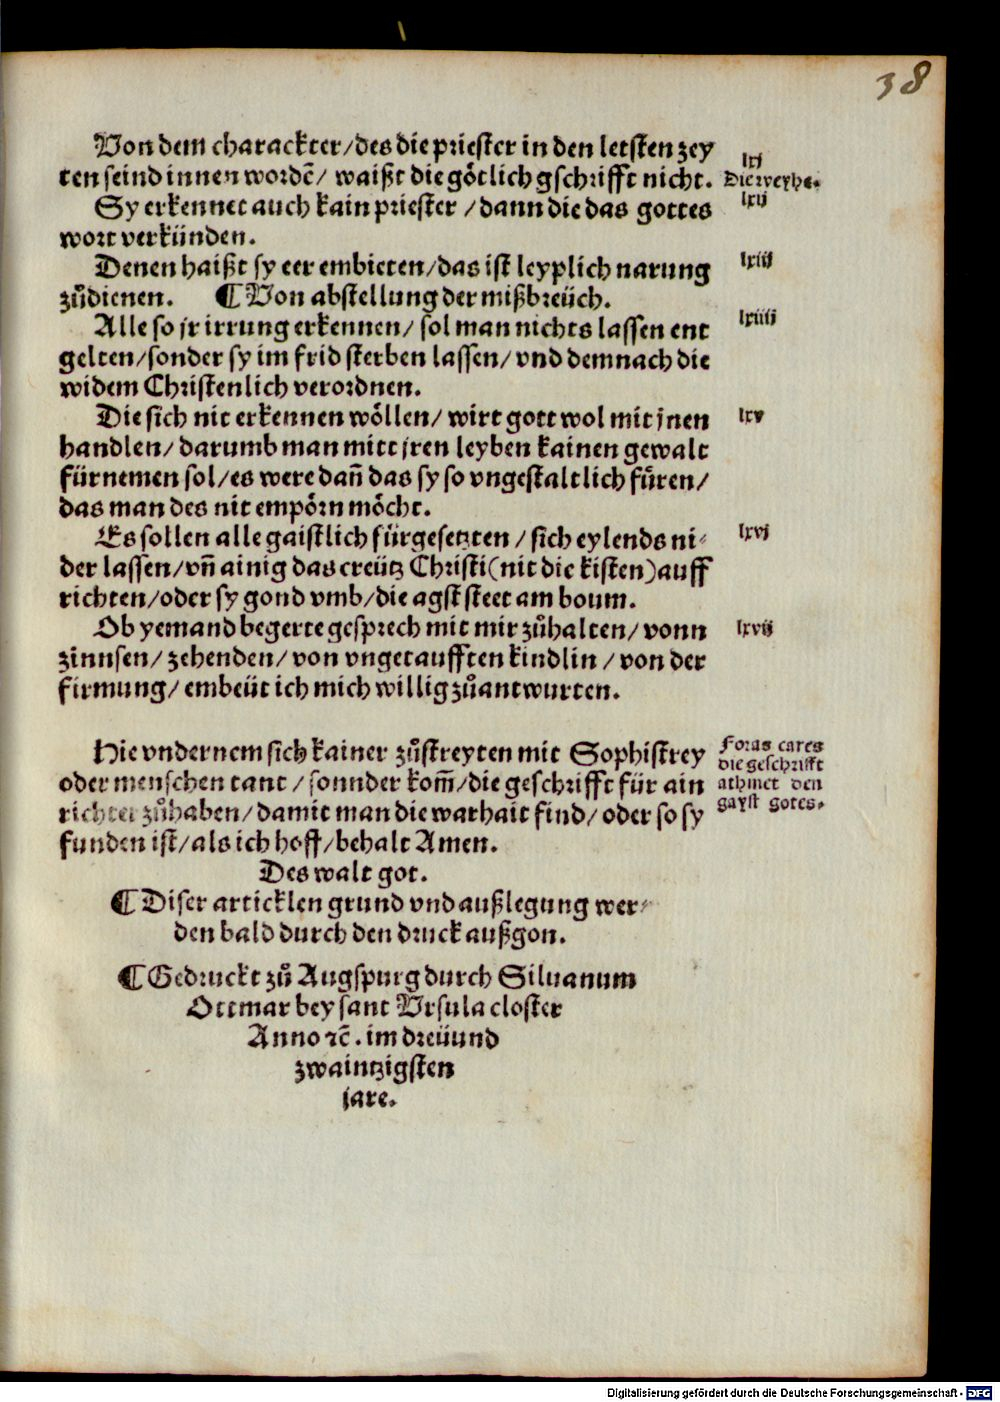 38
Von dem charackter/des die priester in den letsten zey
ten seind innen wordē/ waißt die götlich gschrifft nicht.
lxj
Die weyhe.
Sy erkennet auch kain priester /dann die das gottes
wort verkünden.
lxij
Denen haißt sy eer embieten/das ist leyplich narung
zůdienen. ¶ Von abstellung der mißbreüch.
lxiij
Alle so jr irrung erkennen/ sol man nichts lassen ent
gelten/sonder sy im frid sterben lassen/ vnd demnach die
widem Christenlich verordnen.
lxiiij
Die sich nit erkennen wöllen/ wirt gott wol mit jnen
handlen/ darumb man mitt jren leyben kainen gewalt
fürnemen sol/es were dañ das sy so vngestaltlich fůren/
das man des nit empörn möcht.
lxv
Es sollen alle gaistlich fürgesetzten /sich eylends ni⸗
der lassen/vñ ainig das creütz Christi(nit die kisten)auff
richten/oder sy gond vmb/die agst steet am boum.
lxvj
Ob yemand begerte gesprech mit mir zůhalten/ vonn
zinnsen/ zehenden/ von vngetaufften kindlin /von der
firmung/ embeüt ich mich willig zůantwurten.
lxvij
Hie vndernem sich kainer zůstreyten mit Sophistrey
oder menschen tant /sonnder kom̄/die geschrifft für ain
richter zůhaben/damit man die warhait find/ oder so sy
funden ist/als ich hoff/behalt Amen.
Foras cares
die geschrifft
athmet den
gayst gotes.
Des walt got.
¶ Diser articklen grund vnd außlegung wer⸗
den bald durch den druck außgon.
¶ Gedruckt zů Augspurg durch Siluanum
Ottmar bey sant Vrsula closter
Anno ⁊c̄. im dreüund
zwaintzigsten
jare.
Digitalisierung gefördert durch die Deutsche Forschungsgemeinschaft - DFG